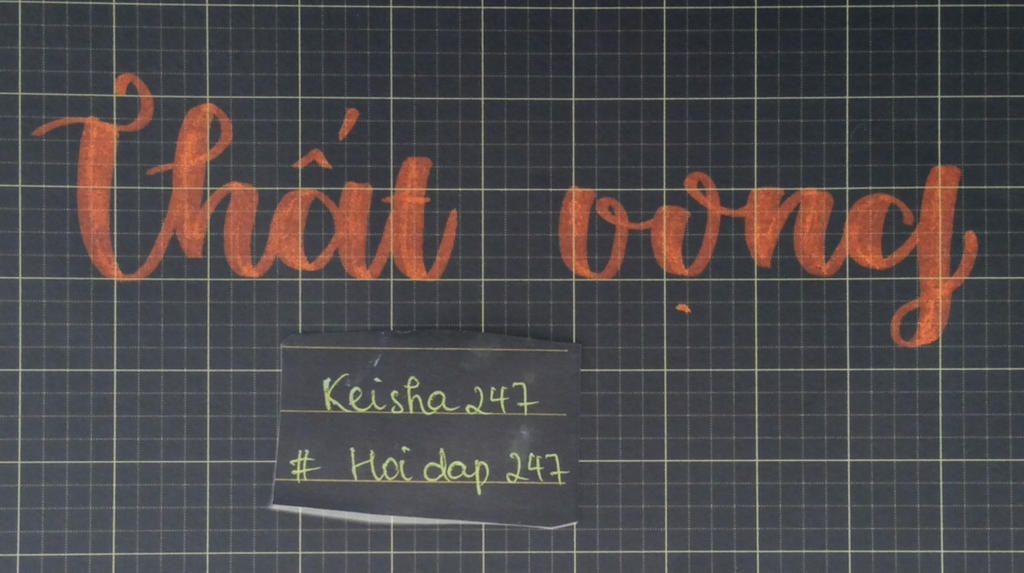 Thất vọng
Keisha 247
# Hoi dap 247